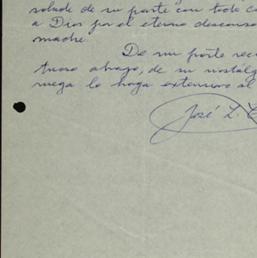 solade de su parte con todo c
a Dios por el eterno descanso
madre.
De mi parte reci
tuoso abrazo, de su nostálg
ruega lo haga extensivo al
José L. C